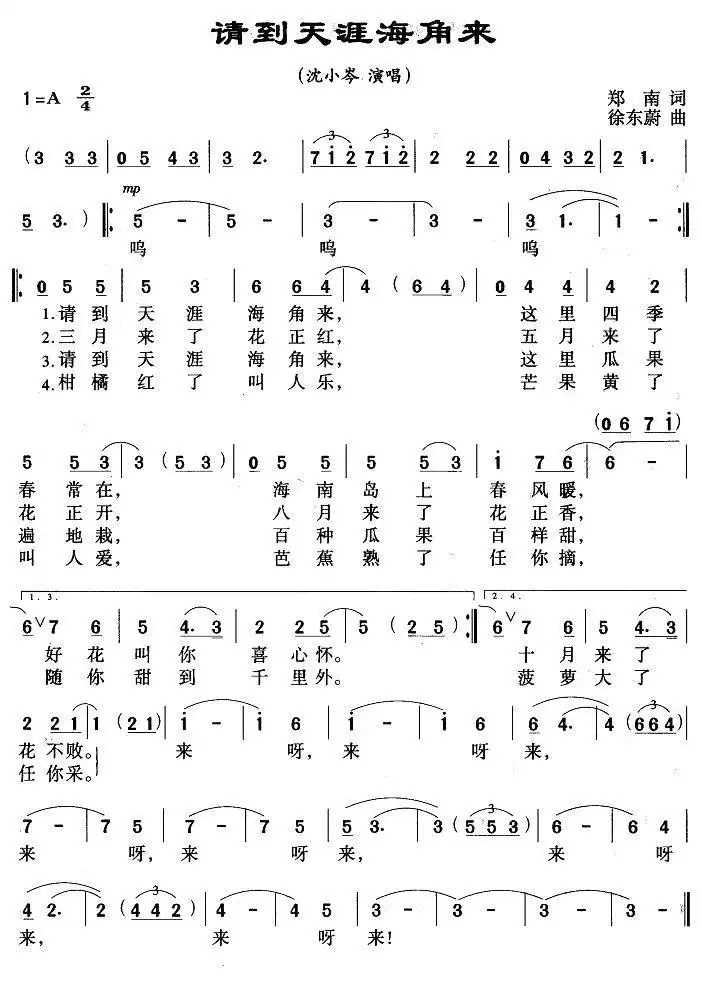 请到天涯海角来
(沈小岑 演唱)
1=A 2/4
郑 南 词
徐东蔚 曲
(3 33 | 05 43 | 3 2. | 3 7i2 3 7i2 | 2 22 | 04 32 | 2 1. |
mp
5 3.) |: 5 - | 5 - | 3 - | 3 - | 3 1. | 1 - :|
呜 呜 呜
|: 0 5 5 | 5 3 | 6 6 4 | 4 (6 4) | 0 4 4 | 4 2 |
1.请 到 天 涯 海 角 来, 这 里 四 季
2.三 月 来 了 花 正 红, 五 月 来 了
3.请 到 天 涯 海 角 来, 这 里 瓜 果
4.柑 橘 红 了 叫 人 乐, 芒 果 黄 了
(0 6 7 i)
5 5 3 | 3 (5 3) | 0 5 5 | 5 5 3 | i 7 6 | 6 - |
春 常 在, 海 南 岛 上 春 风 暖,
花 正 开, 八 月 来 了 花 正 香,
遍 地 栽, 百 种 瓜 果 百 样 甜,
叫 人 爱, 芭 蕉 熟 了 任 你 摘,
1. 3. 2. 4.
6 V 7 6 | 5 4. 3 | 2 2 5 | 5 (2 5) :| 6 V 7 6 | 5 4. 3 |
好 花 叫 你 喜 心 怀。 十 月 来 了
随 你 甜 到 千 里 外。 菠 萝 大 了
2 2 1 | 1 (2 1) | i - | i 6 | i - | i 6 | 6 4. | 4 (3 6 6 4) |
花 不 败。 来 呀, 来 呀 来,
任 你 采。
7 - | 7 5 | 7 - | 7 5 | 5 3. | 3 (3 5 5 3) | 6 - | 6 4 |
来 呀, 来 呀 来, 来 呀
4 2. | 2 (3 4 4 2) | 4 - | 4 5 | 3 - | 3 - | 3 - | 3 - :|
来, 来 呀 来!